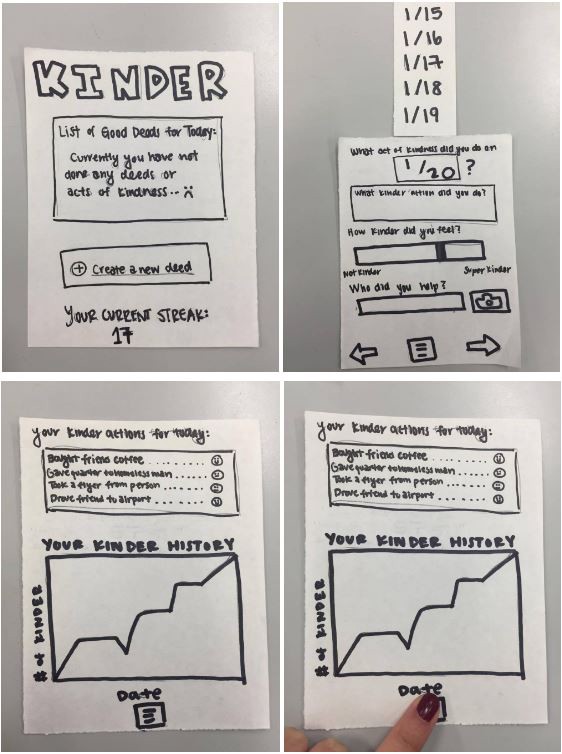 KINDER
List of Good Deads for Today:
Currently you have not
done any deeds or
acts of kindness..
+ Create a new deed
YOUR CURRENT STREAK:
17
1/15
1/16
1/17
1/18
1/19
What act of kindness did you do on
1/20 ?
What kinder action did you do?
How kinder did you feel?
Not Kinder
Super Kinder
Who did you help?
Your kinder actions for today:
Bought friend coffee ........
Gave quarter to homeless man ....
Took a flyer from person .....
Drove friend to airport ......
YOUR KINDER HISTORY
# OF KINDER
Date
Your kinder actions for today:
Bought friend coffee ........
Gave quarter to homeless man ....
Took a flyer from person .....
Drove friend to airport ......
YOUR KINDER HISTORY
# OF KINDER
Date